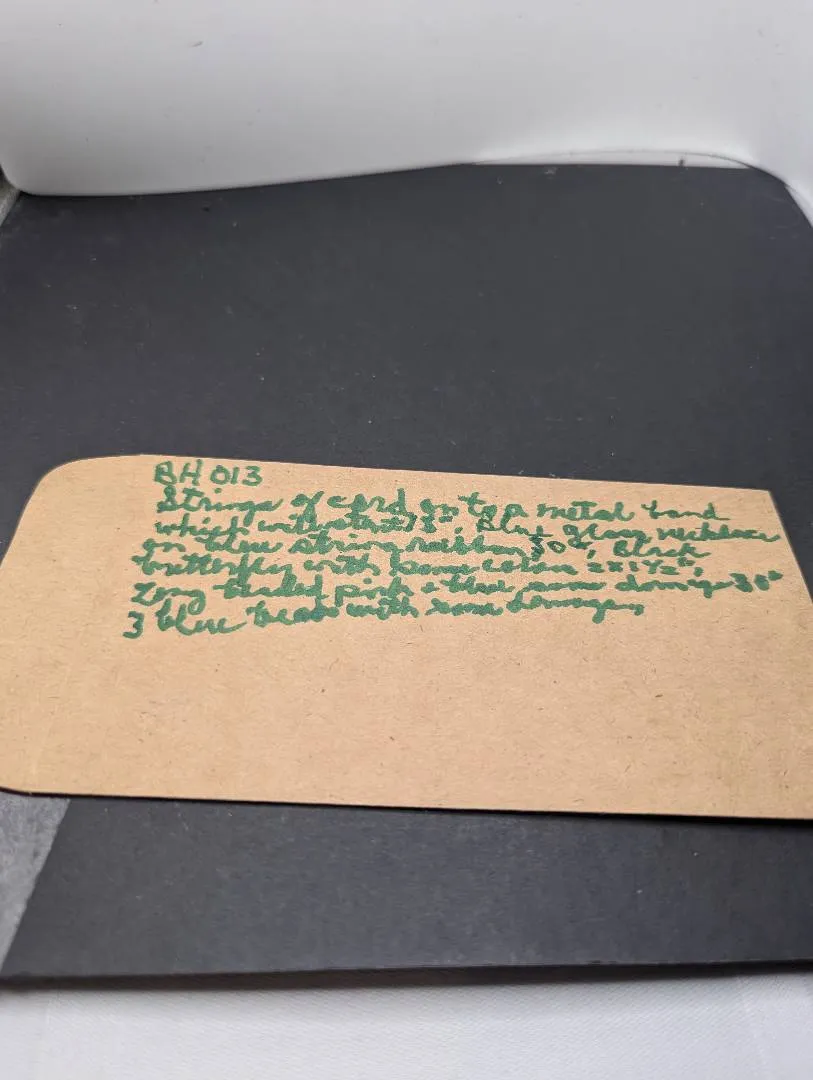 BH 013
Strings of cord on to a metal band
which 13", Blue glass necklace
on blue string ribbon 30", Black
butterfly with some 2x1½",
Long beaded pink + blue some damage 30"
3 blue beads with some damage,